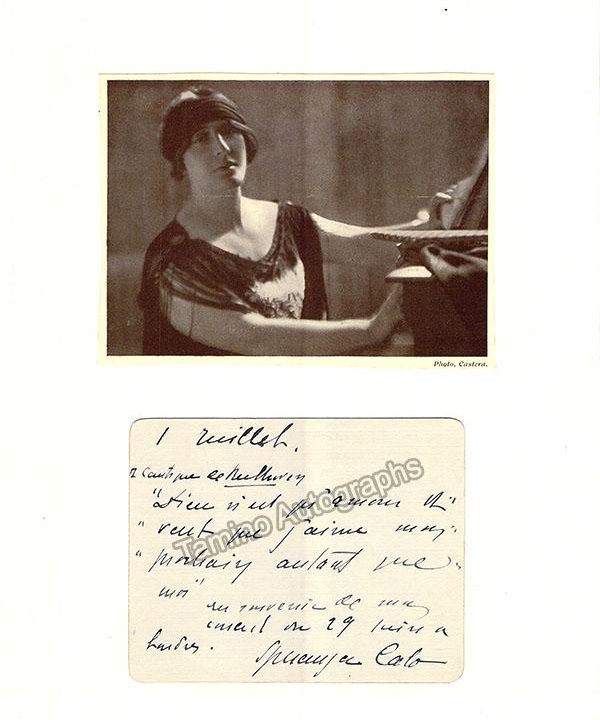 Photo, Castera.
1 Juillet.
Cantique de Beethoven
"Dieu n'est qu'amour Et"
"veut que j'aime mon"
"prochain autant que"
moi"
en souvenir de mon
concert du 29 Juin a
Londres.
Speranza Calo
Tamino Autographs